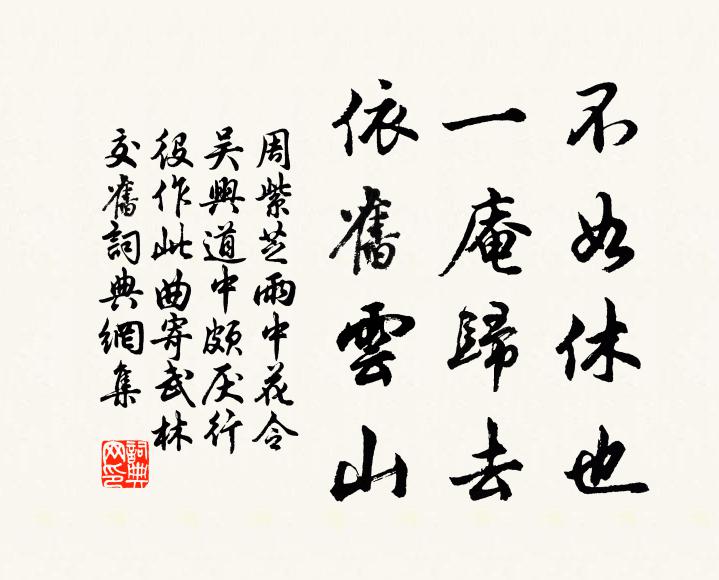 不如休也
一庵歸去
依舊雲山
周紫芝雨中花令
吴興道中頗厌行
役作此曲寄武林
交舊詞典網集
詞典
网印